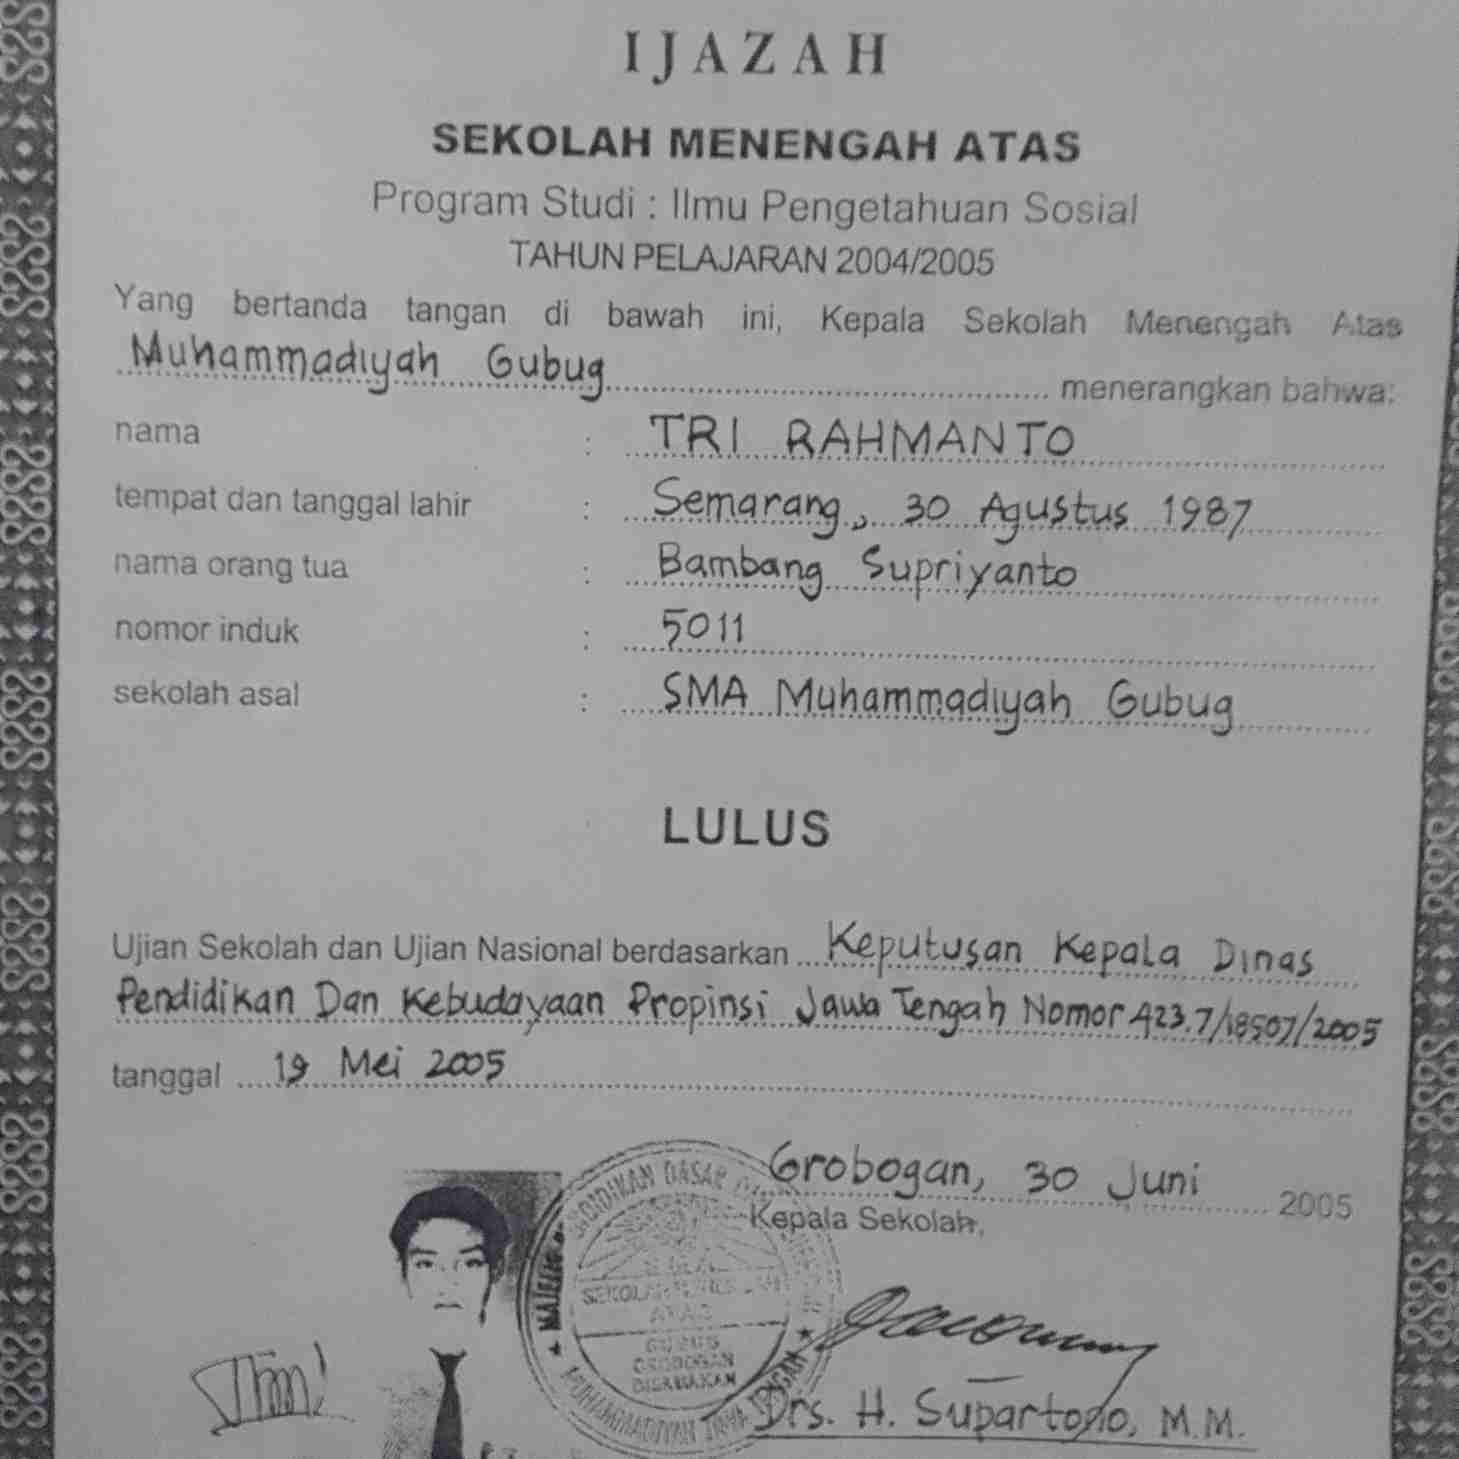 IJAZAH
SEKOLAH MENENGAH ATAS
Program Studi : Ilmu Pengetahuan Sosial
TAHUN PELAJARAN 2004/2005
Yang bertanda tangan di bawah ini, Kepala Sekolah Menengah Atas
Muhammadiyah Gubug menerangkan bahwa:
nama : TRI RAHMANTO
tempat dan tanggal lahir : Semarang, 30 Agustus 1987
nama orang tua : Bambang Supriyanto
nomor induk : 5011
sekolah asal : SMA Muhammadiyah Gubug
LULUS
Ujian Sekolah dan Ujian Nasional berdasarkan Keputusan Kepala Dinas
Pendidikan Dan Kebudayaan Propinsi Jawa Tengah Nomor 423.7/18507/2005
tanggal 19 Mei 2005
Grobogan, 30 Juni 2005
Kepala Sekolah,
MAJELIS PENDIDIKAN DASAR
SEKOLAH
ATAS
GUBUG
GROBOGAN
DISAMAKAN
MUHAMMADIYAH JAWA TENGAH
Drs. H. Supartono, M.M.